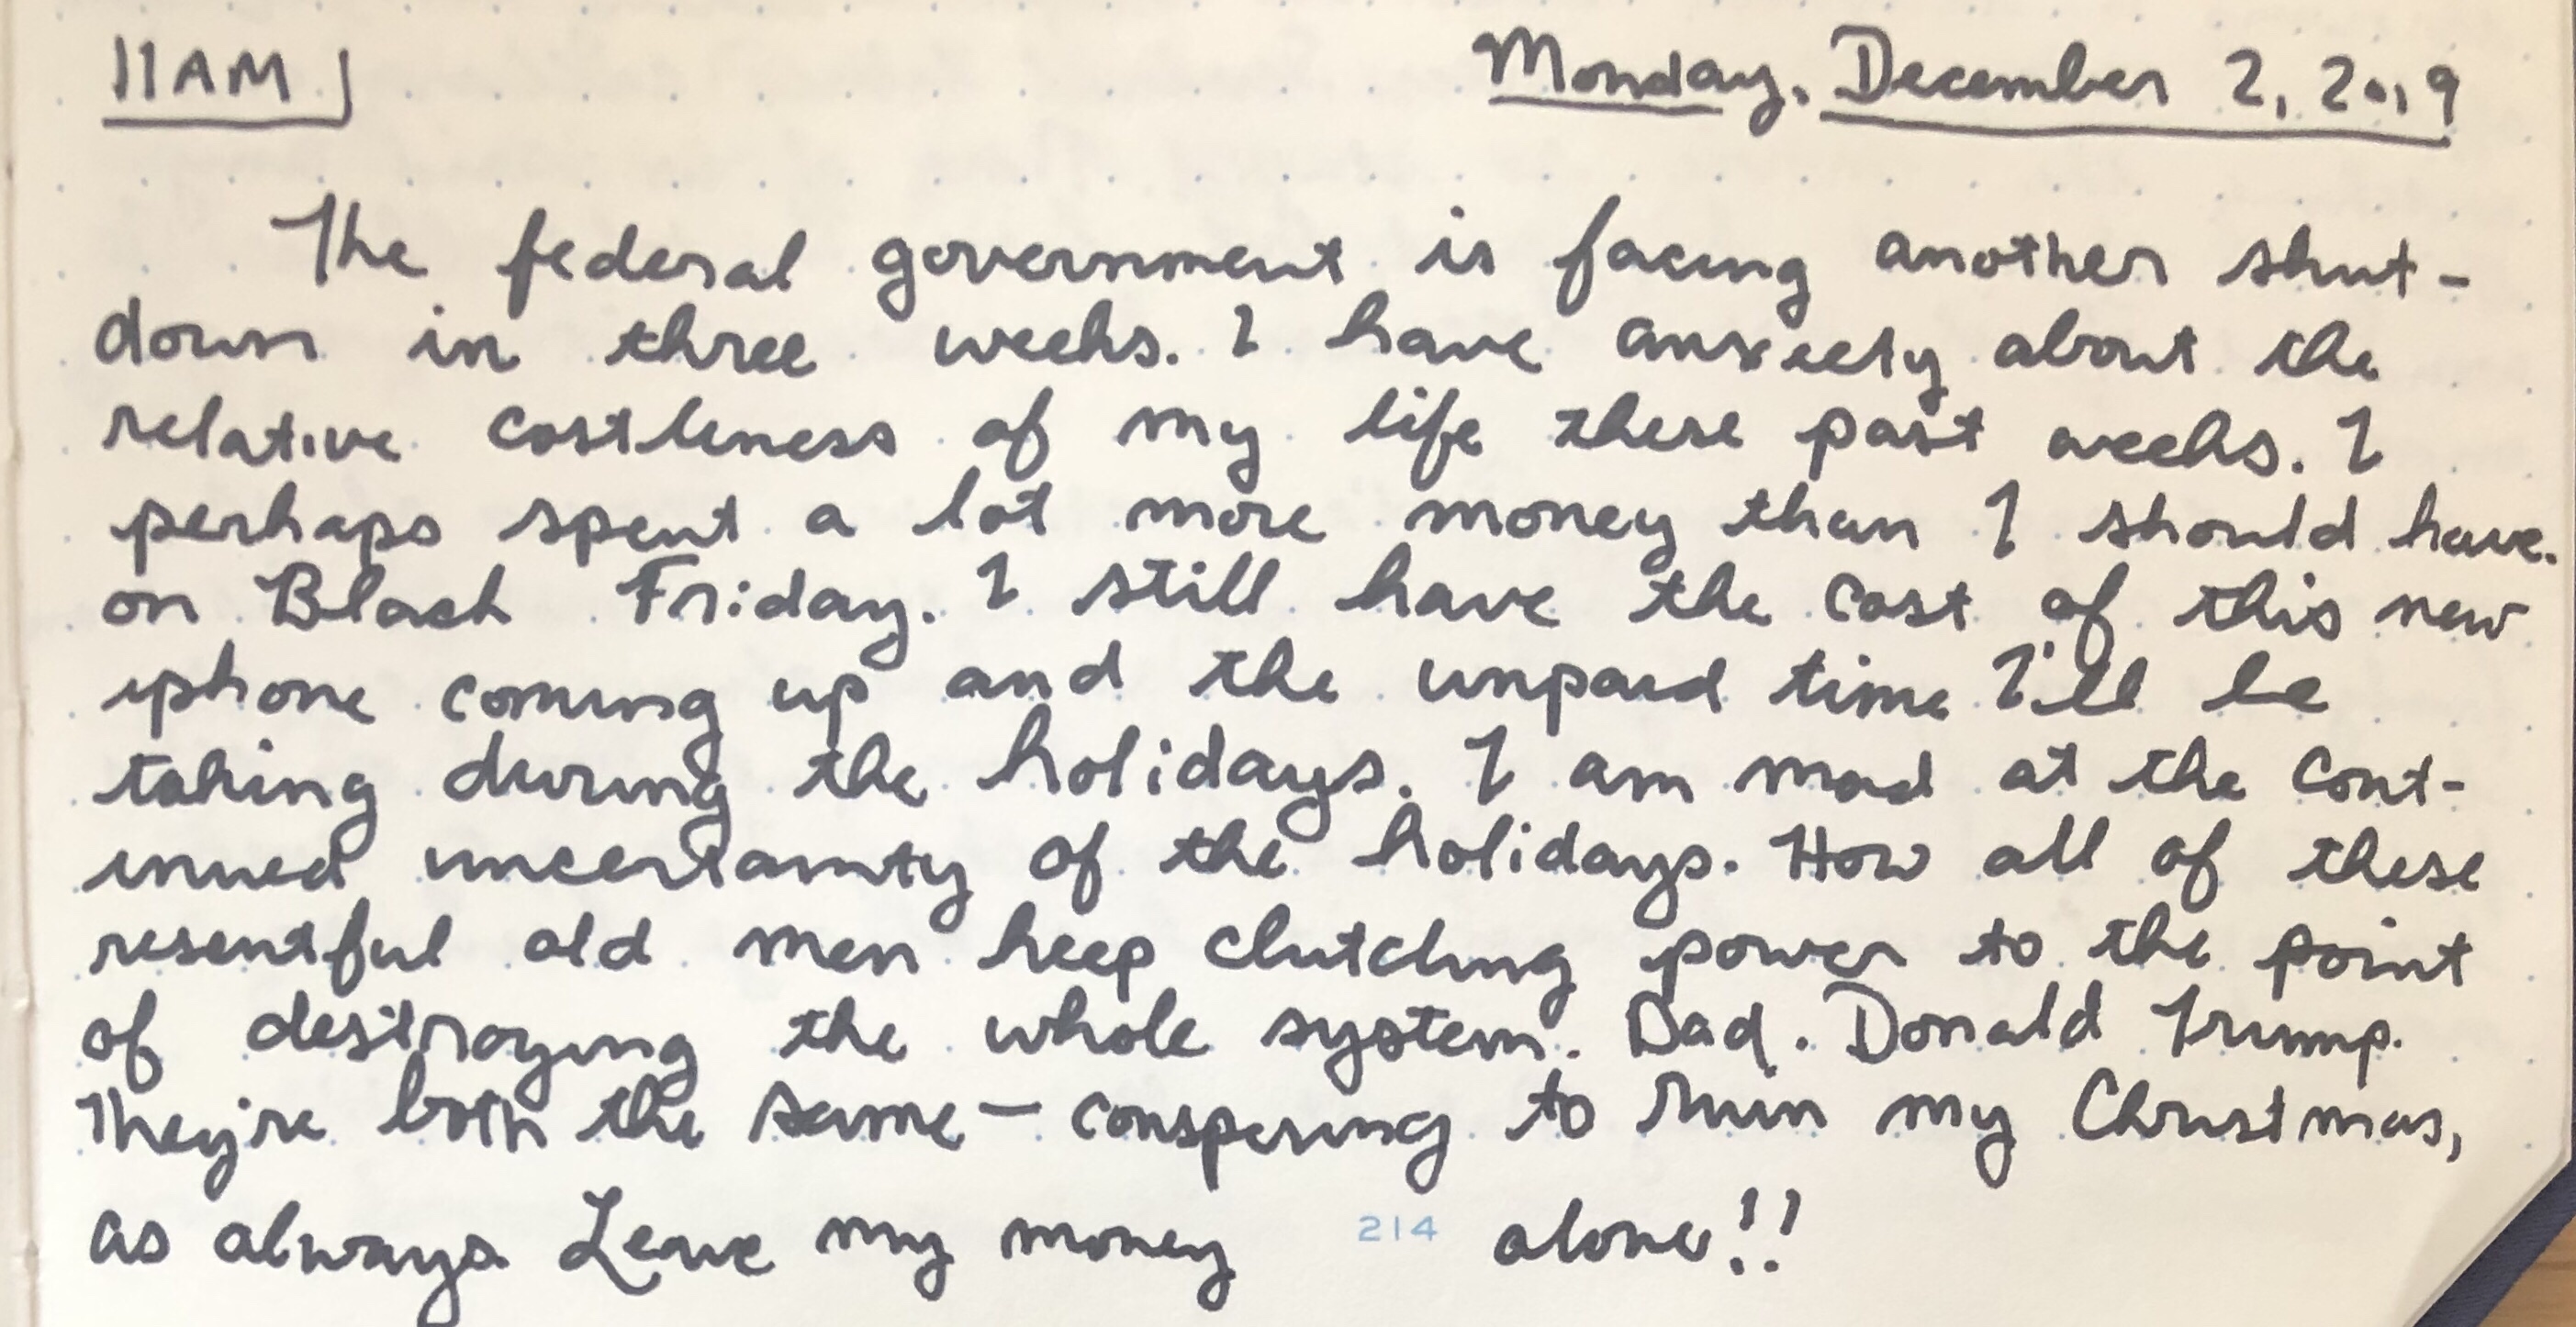 11AM Monday, December 2, 2019
The federal government is facing another shut-
down in three weeks. I have anxiety about the
relative costliness of my life these past weeks. I
perhaps spent a lot more money than I should have
on Black Friday. I still have the cost of this new
iphone coming up and the unpaid time I'll be
taking during the holidays. I am mad at the cont-
inued uncertainty of the holidays. How all of these
resentful old men keep clutching power to the point
of destroying the whole system. Dad. Donald Trump.
They're both the same — conspiring to ruin my Christmas,
as always. Leave my money 214 alone!!